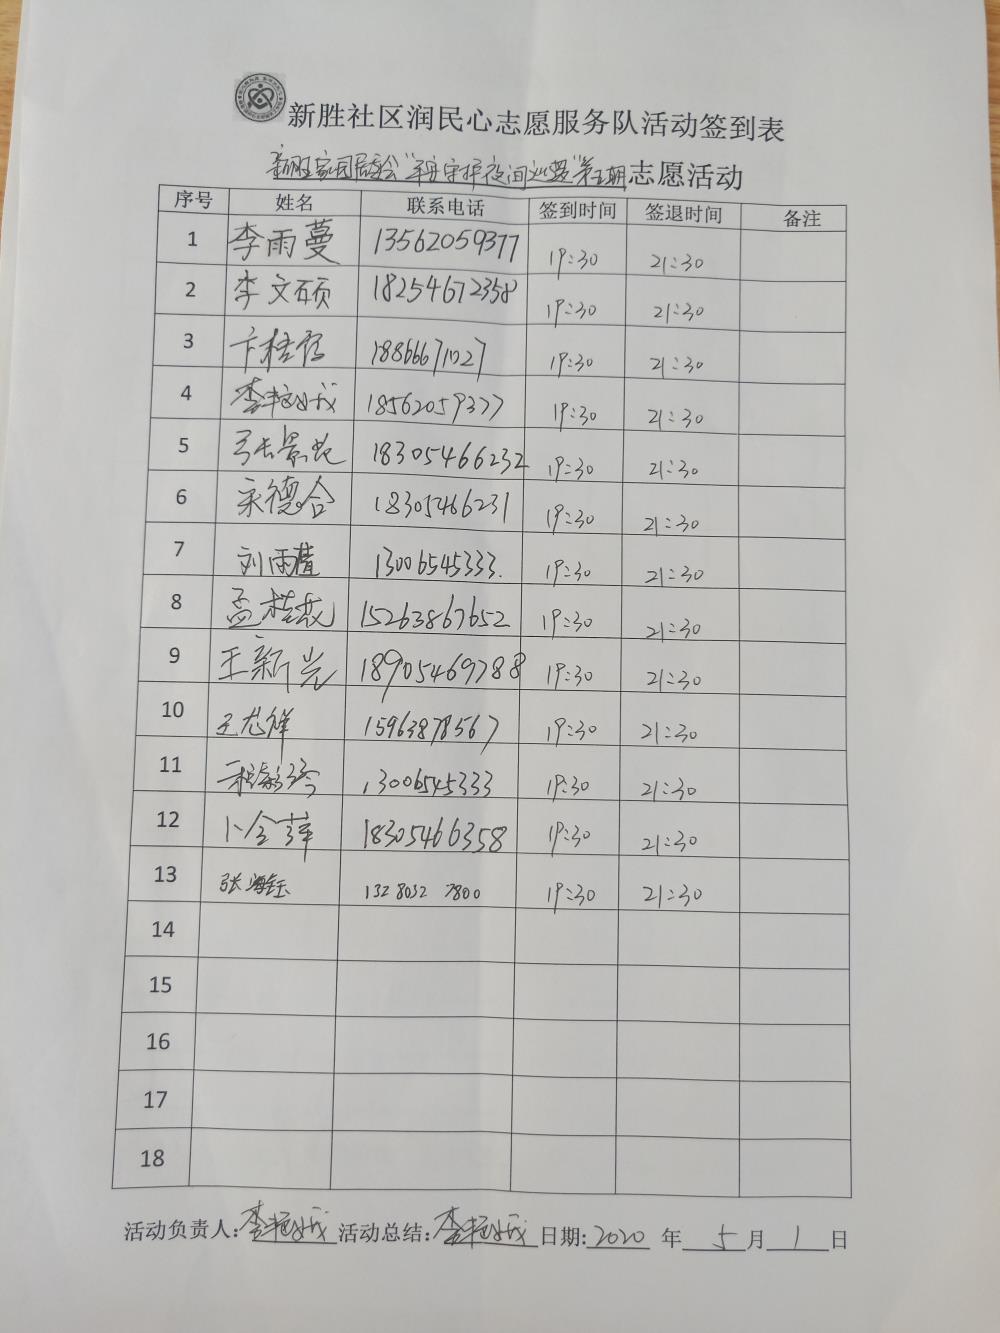 新胜社区润民心志愿服务队活动签到表
新胜家园居委会"平安守护夜间巡逻"第五期志愿活动
序号 姓名 联系电话 签到时间 签退时间 备注
1 李雨蔓 13562059377 19:30 21:30
2 李文硕 18254672358 19:30 21:30
3 卞桂 18866671027 19:30 21:30
4 李艳娥 18562059377 19:30 21:30
5 张景 18305466232 19:30 21:30
6 宋德合 18305466231 19:30 21:30
7 刘雨 13006545333. 19:30 21:30
8 孟桂 15263867652 19:30 21:30
9 王新光 18905469788 19:30 21:30
10 王龙祥 15963878567 19:30 21:30
11 13006545333 19:30 21:30
12 卜全萍 18305466358 19:30 21:30
13 张海钰 132 8032 7800 19:30 21:30
14
15
16
17
18
活动负责人:李艳娥 活动总结:李艳娥 日期:2020 年 5 月 1 日